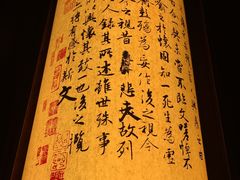 未嘗不臨文嗟悼不
之於懷固知一死生為虛
彭殤為妄作後之視今
今之視昔悲夫故列
人錄其所述雖世殊事
興懷其致一也後之攬
將有感於斯文